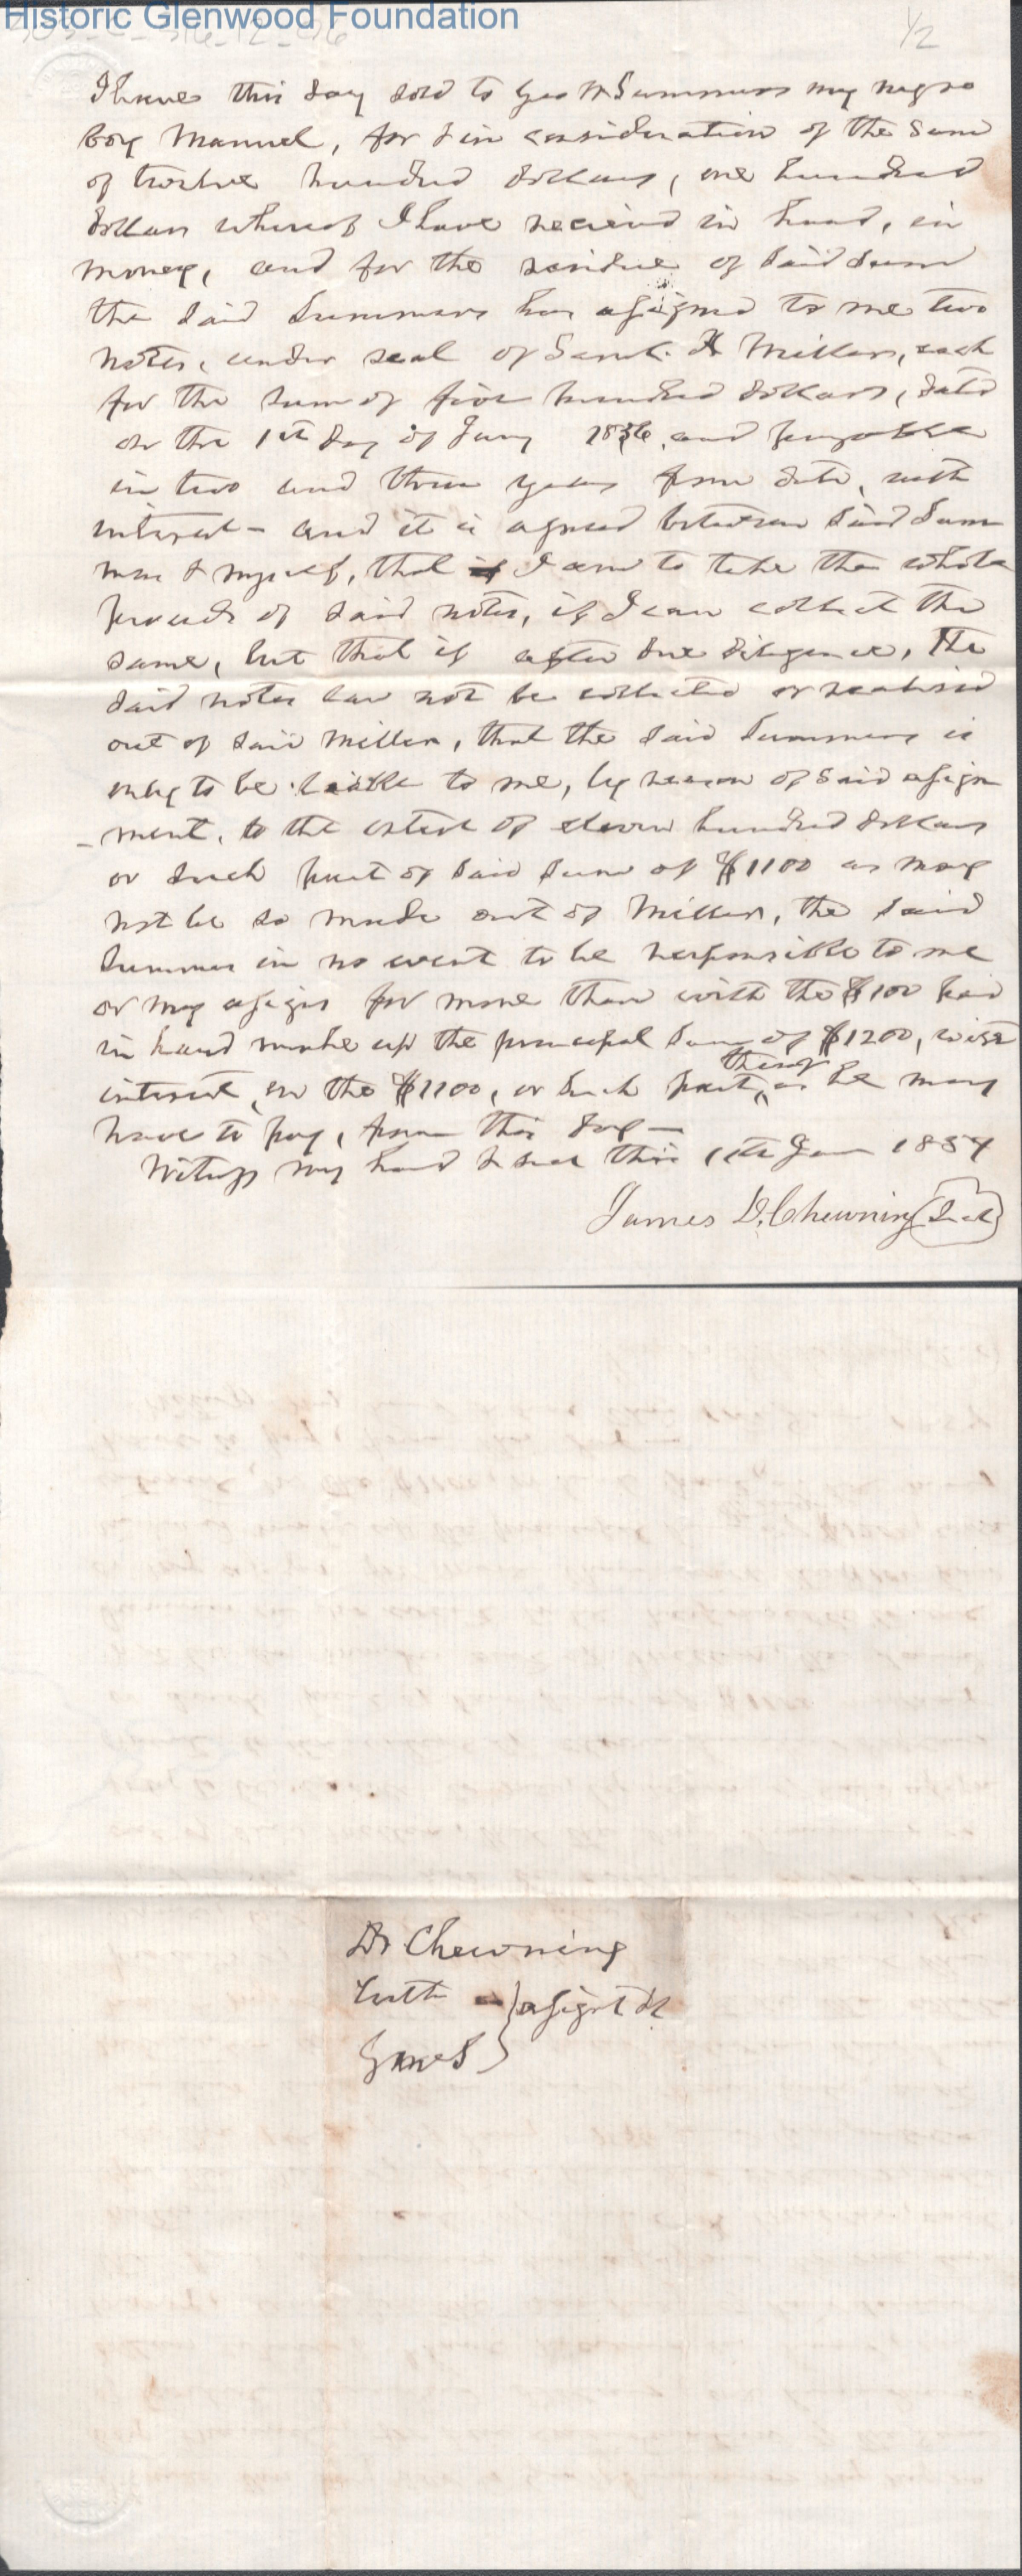 Historic Glenwood Foundation
1/2
I have this day sold to Geo W Summers my negro
boy Manuel, for & in consideration of the sum
of twelve hundred dollars, one hundred
dollars whereof I have recieved in hand, in
money, and for the residue of said sum
the said Summers has assigned to me two
notes, under seal of Saml. H Miller, each
for the sum of five hundred dollars, dated
on the 1st day of Jany 1856, and payable
in two and three years from date, with
interest - and it is agreed between said Sum
mers & myself, that I am to take the whole
proceeds of said notes, if I can collect the
same, but that if after due diligence, the
said notes can not be collected or realised
out of said Miller, that the said Summers is
only to be liable to me, by reason of said assign
-ment, to the extent of eleven hundred dollars
or such part of said sum of $1100 as may
not be so made out of Miller, the said
Summers in no event to be responsible to me
or my assigns for more than with the $100 paid
in hand make up the principal sum of $1200, with
interest, on the $1100, or such part thereof as he may
have to pay, from this day -
Witness my hand & seal this 11th Jan 1857
James D. Chewning (Seal)
Dr Chewning
with } assigt &c
GWS